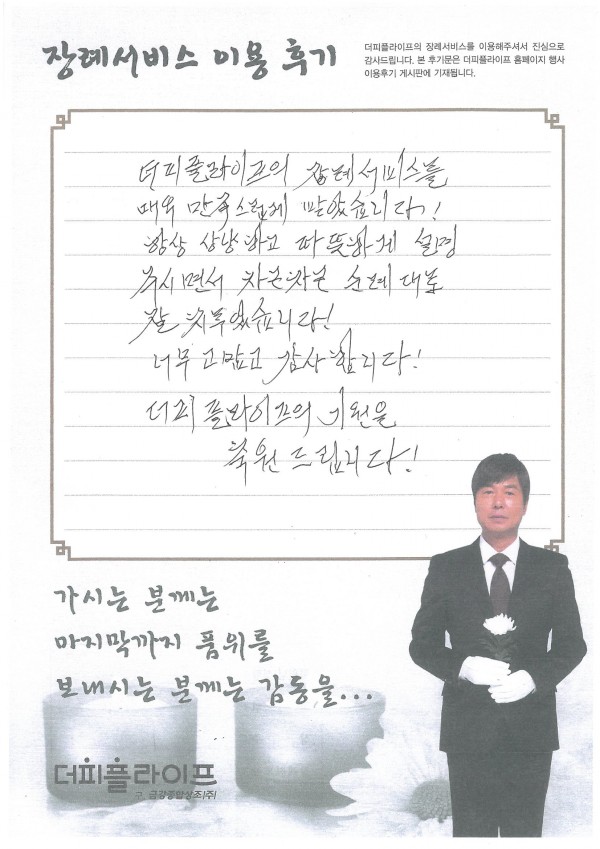 장례서비스 이용 후기
더피플라이프의 장례서비스를 이용해주셔서 진심으로
감사드립니다. 본 후기문은 더피플라이프 홈페이지 행사
이용후기 게시판에 기재됩니다.
더피플라이프의 장례서비스를
매우 만족스럽게 받았습니다!
항상 상냥하고 따뜻하게 설명
주시면서 차근차근 순례대로
잘 치루었습니다!
너무 고맙고 감사합니다!
더피플라이프의 기원을
축원 드립니다!
가시는 분께는
마지막까지 품위를
보내시는 분께는 감동을...
더피플라이프
구. 금강종합상조(주)